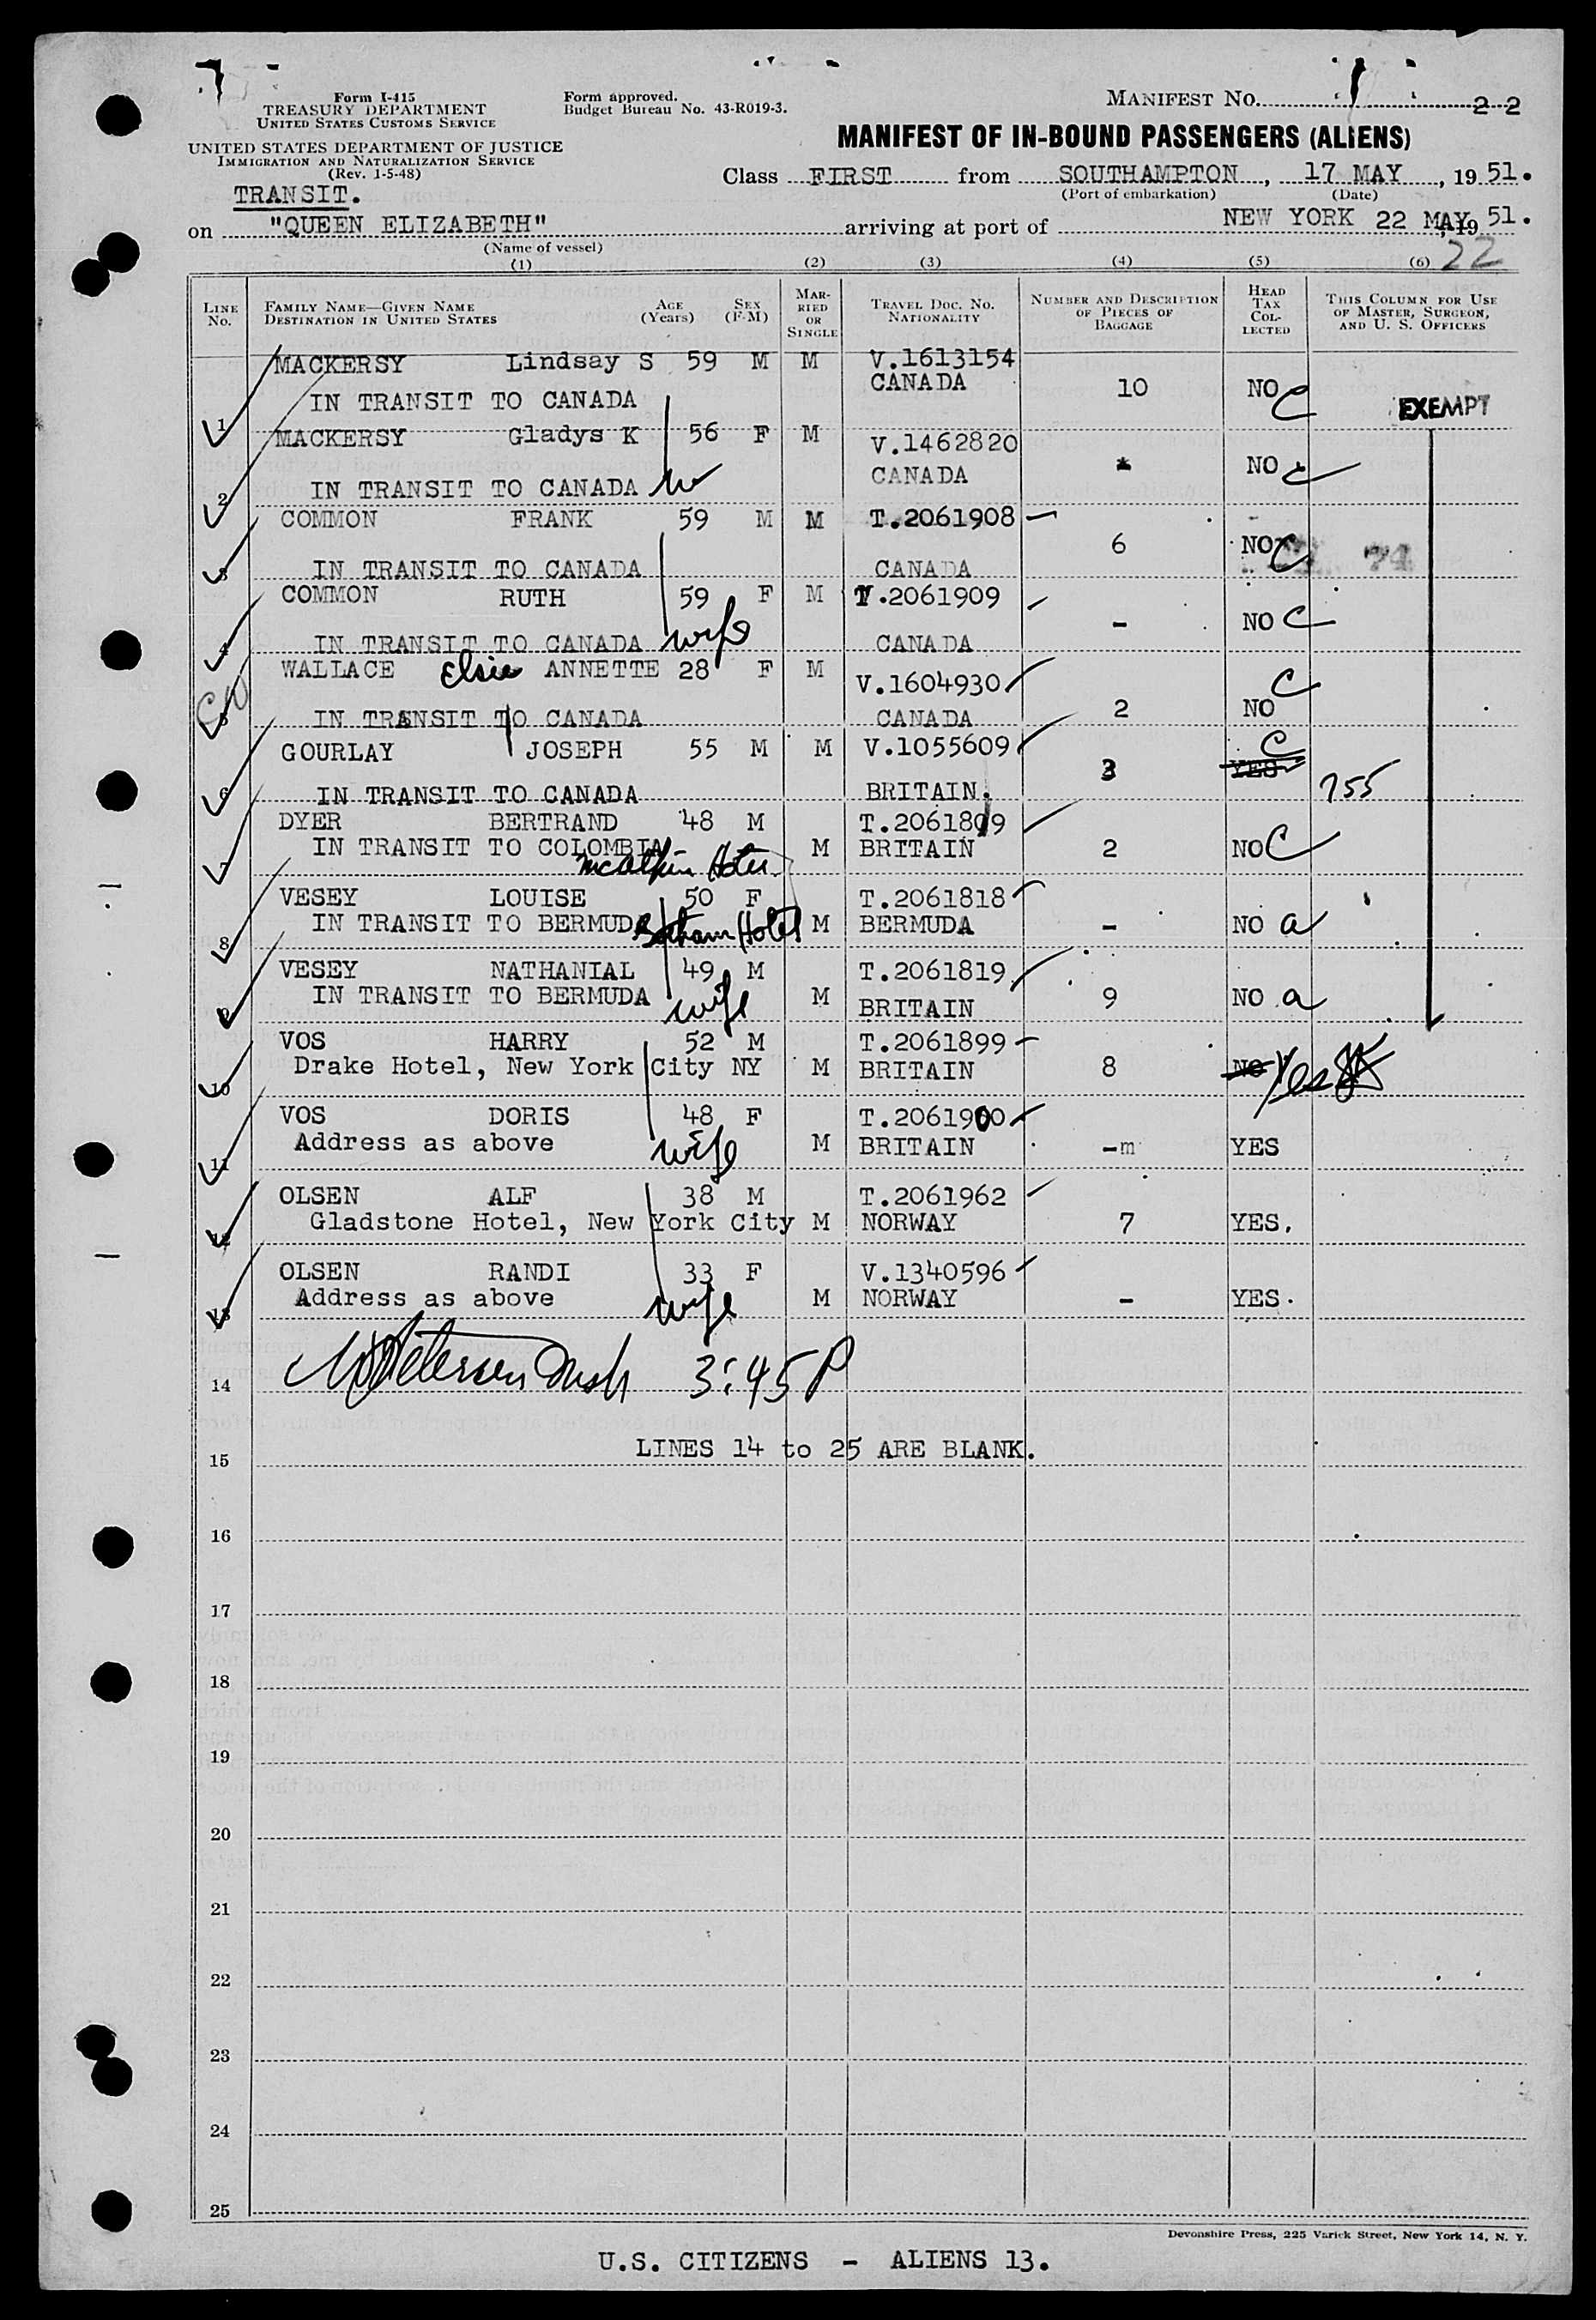 Form I-415
TREASURY DEPARTMENT
UNITED STATES CUSTOMS SERVICE
UNITED STATES DEPARTMENT OF JUSTICE
IMMIGRATION AND NATURALIZATION SERVICE
(Rev. 1-5-48)
Form approved.
Budget Bureau No. 43-R019-3.
MANIFEST NO. 22
MANIFEST OF IN-BOUND PASSENGERS (ALIENS)
Class FIRST from SOUTHAMPTON, 17 MAY, 1951.
(Port of embarkation) (Date)
TRANSIT.
on "QUEEN ELIZABETH" arriving at port of NEW YORK 22 MAY, 1951.
(Name of vessel)
22
(1) (2) (3) (4) (5) (6)
LINE NO. FAMILY NAME—GIVEN NAME DESTINATION IN UNITED STATES AGE (Years) SEX (F-M) MARRIED OR SINGLE TRAVEL DOC. NO. NATIONALITY NUMBER AND DESCRIPTION OF PIECES OF BAGGAGE HEAD TAX COLLECTED THIS COLUMN FOR USE OF MASTER, SURGEON, AND U. S. OFFICERS
MACKERSY Lindsay S 59 M M V.1613154
1 IN TRANSIT TO CANADA CANADA 10 NO C EXEMPT
MACKERSY Gladys K 56 F M V.1462820
2 IN TRANSIT TO CANADA w CANADA * NO C
COMMON FRANK 59 M M T.2061908
3 IN TRANSIT TO CANADA CANADA 6 NO C
COMMON RUTH 59 F M T.2061909
4 IN TRANSIT TO CANADA wife CANADA - NO C
WALLACE Elsie ANNETTE 28 F M V.1604930
5 IN TRANSIT TO CANADA CANADA 2 NO C
GOURLAY JOSEPH 55 M M V.1055609
6 IN TRANSIT TO CANADA BRITAIN. 3 YES C 755
DYER BERTRAND 48 M T.2061809
7 IN TRANSIT TO COLOMBIA M BRITAIN 2 NO C
McAlpin Hotel
VESEY LOUISE 50 F T.2061818
8 IN TRANSIT TO BERMUDA Hotel M BERMUDA - NO a
VESEY NATHANIAL 49 M T.2061819
9 IN TRANSIT TO BERMUDA wife M BRITAIN 9 NO a
VOS HARRY 52 M T.2061899
10 Drake Hotel, New York City NY M BRITAIN 8 NO Yes
VOS DORIS 48 F T.2061900
11 Address as above wife M BRITAIN -m YES
OLSEN ALF 38 M T.2061962
12 Gladstone Hotel, New York City M NORWAY 7 YES.
OLSEN RANDI 33 F V.1340596
13 Address as above wife M NORWAY - YES.
14 3:45 P
LINES 14 to 25 ARE BLANK.
15
16
17
18
19
20
21
22
23
24
25
Devonshire Press, 225 Varick Street, New York 14, N. Y.
U.S. CITIZENS - ALIENS 13.